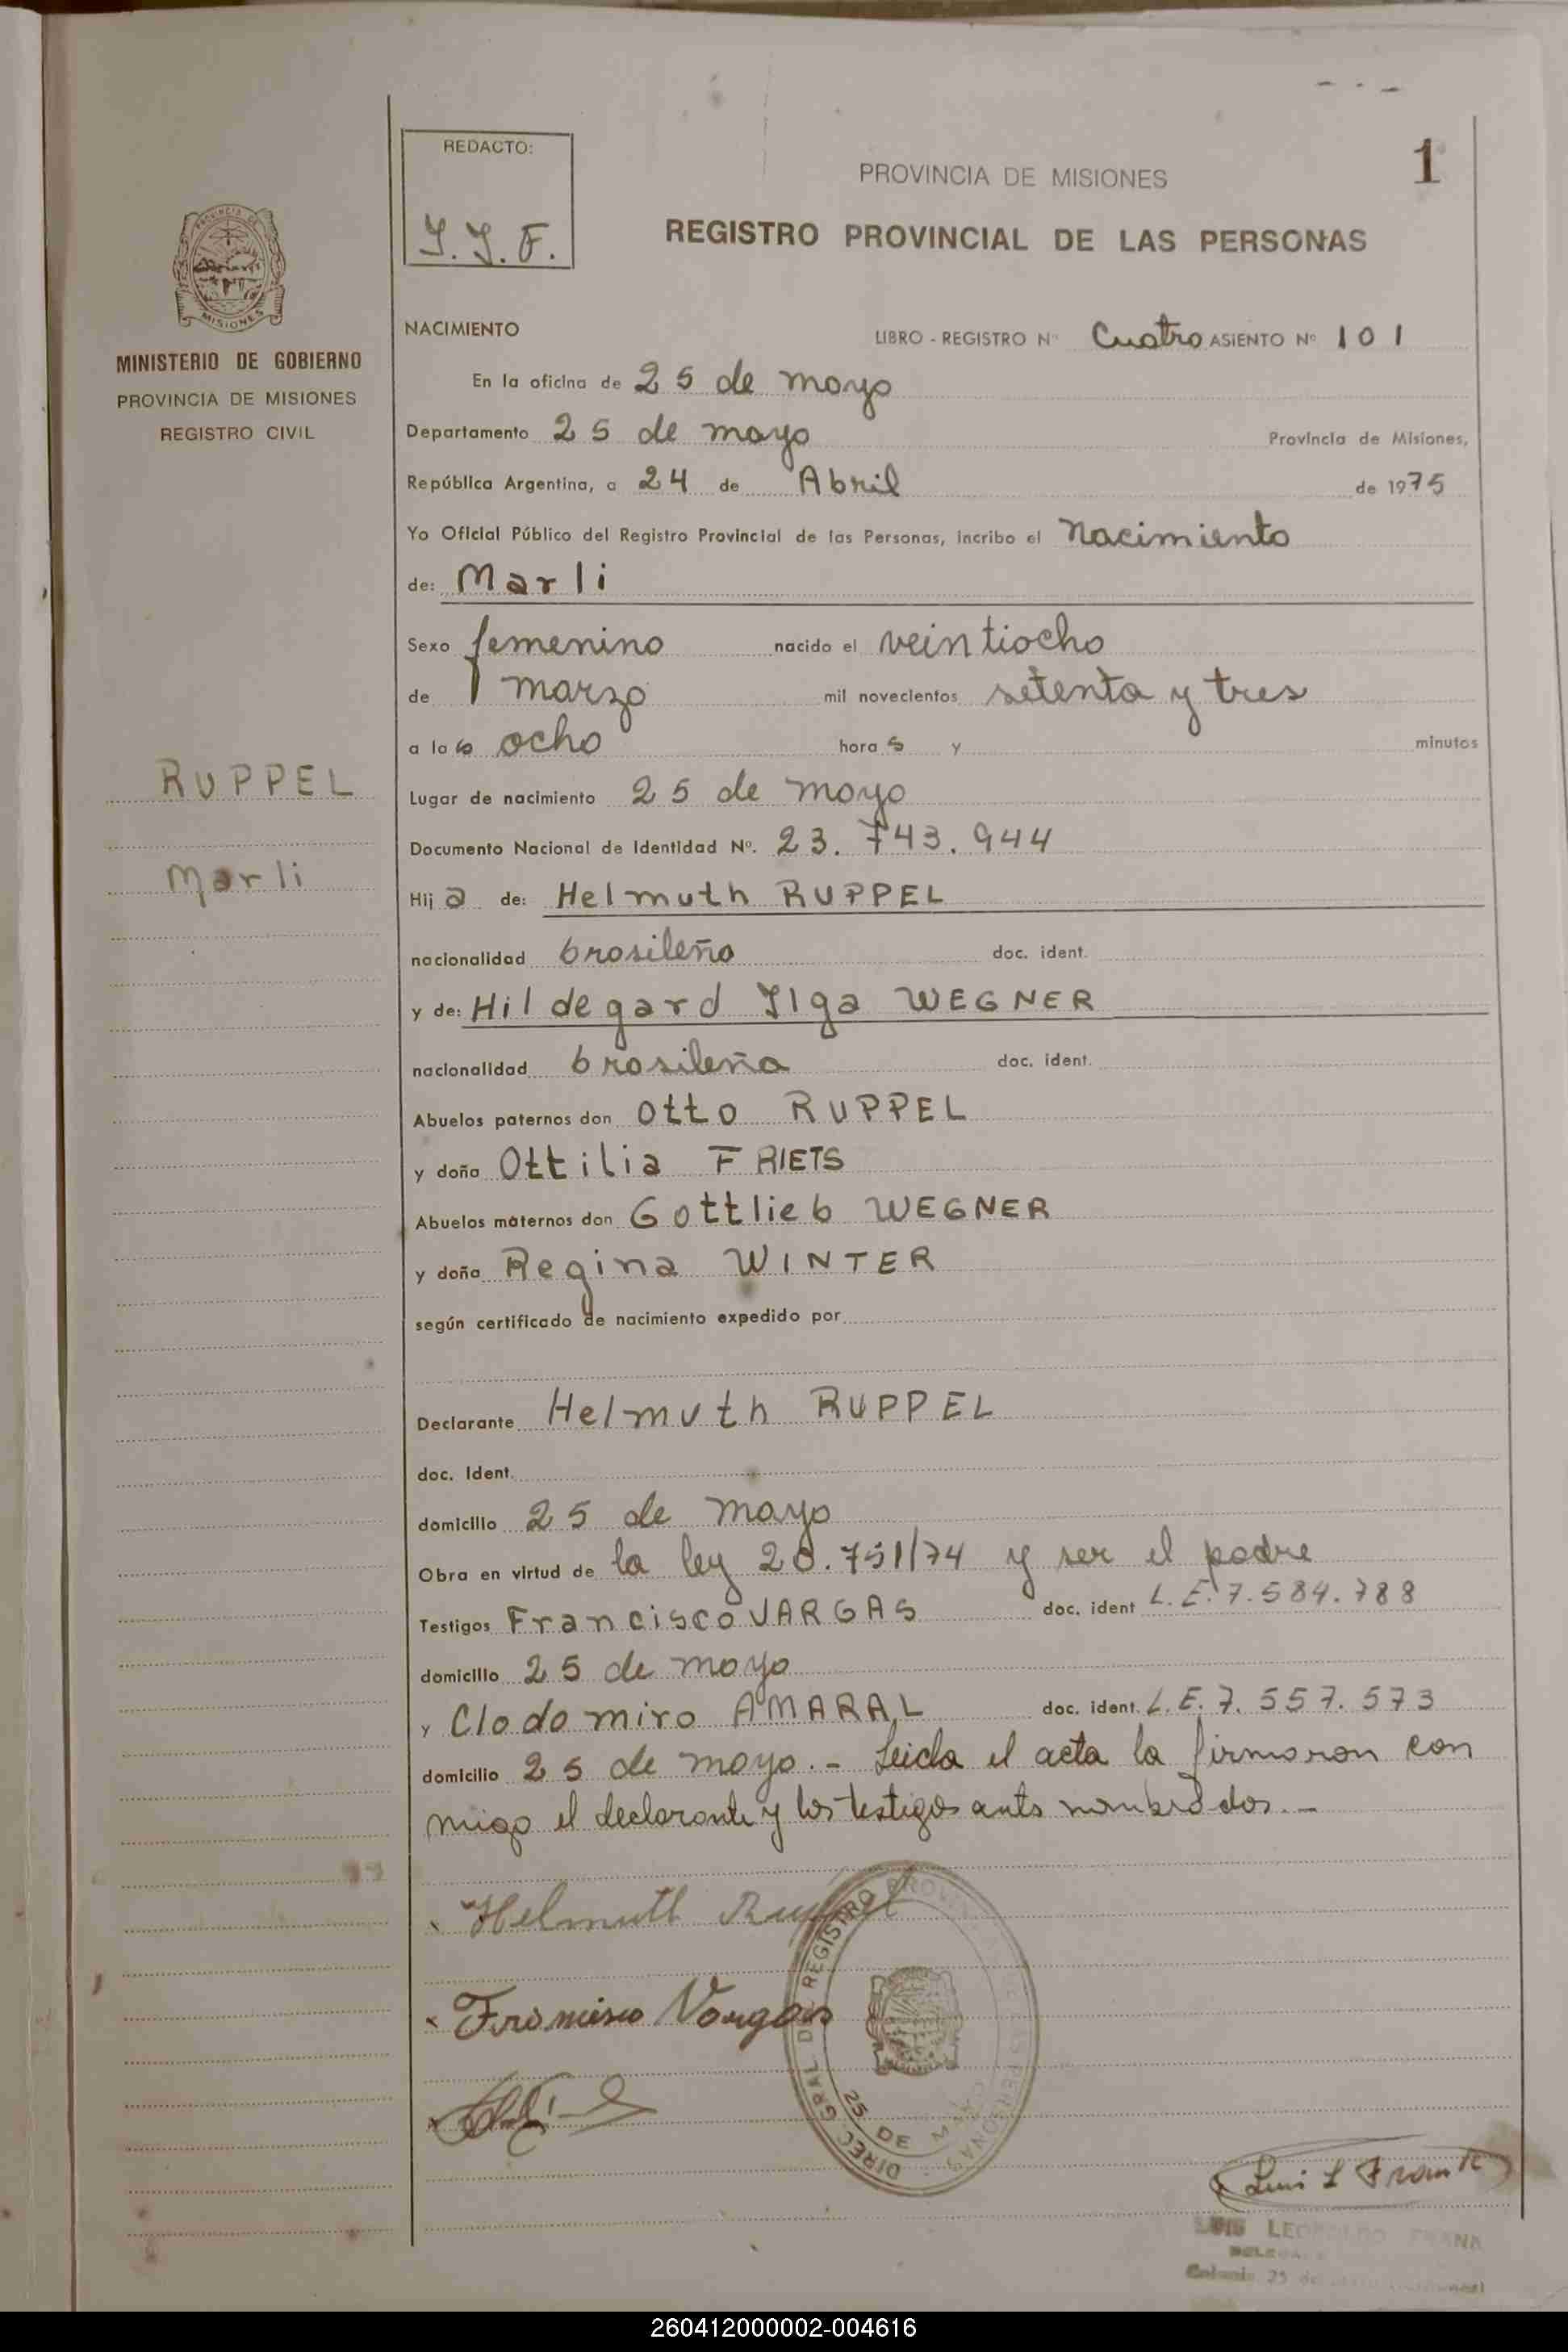 REDACTO:
Y. Y. F.
PROVINCIA DE MISIONES
1
REGISTRO PROVINCIAL DE LAS PERSONAS
PROVINCIA DE
MISIONES
MINISTERIO DE GOBIERNO
PROVINCIA DE MISIONES
REGISTRO CIVIL
RUPPEL
Marli
NACIMIENTO
LIBRO - REGISTRO Nº Cuatro ASIENTO Nº 101
En la oficina de 25 de mayo
Departamento 25 de mayo Provincia de Misiones,
República Argentina, a 24 de Abril de 1975
Yo Oficial Público del Registro Provincial de las Personas, incribo el Nacimiento
de: Marli
Sexo femenino nacido el veintiocho
de marzo mil novecientos setenta y tres
a las ocho horas y minutos
Lugar de nacimiento 25 de mayo
Documento Nacional de Identidad Nº. 23.743.944
Hija de: Helmuth RUPPEL
nacionalidad brasileño doc. ident.
y de: Hildegard Ilga WEGNER
nacionalidad brasileña doc. ident.
Abuelos paternos don Otto RUPPEL
y doña Ottilia FRIETS
Abuelos maternos don Gottlieb WEGNER
y doña Regina WINTER
según certificado de nacimiento expedido por
Declarante Helmuth RUPPEL
doc. Ident.
domicilio 25 de mayo
Obra en virtud de la ley 20.751/74 y ser el padre
Testigos Francisco VARGAS doc. ident L.E. 7.584.788
domicilio 25 de mayo
y Clodomiro AMARAL doc. ident. L.E. 7.557.573
domicilio 25 de mayo. - Leida el acta la firmaron con
migo el declarante y los testigos ants nombrados. -
Helmuth Ruppel
Francisco Vargas
DIREC. GRAL. DEL REGISTRO PROV. DE LAS PERSONAS
25 DE MAYO
Luis L Frank
LUIS LEOPOLDO FRANK
Colonia 25 de
260412000002-004616